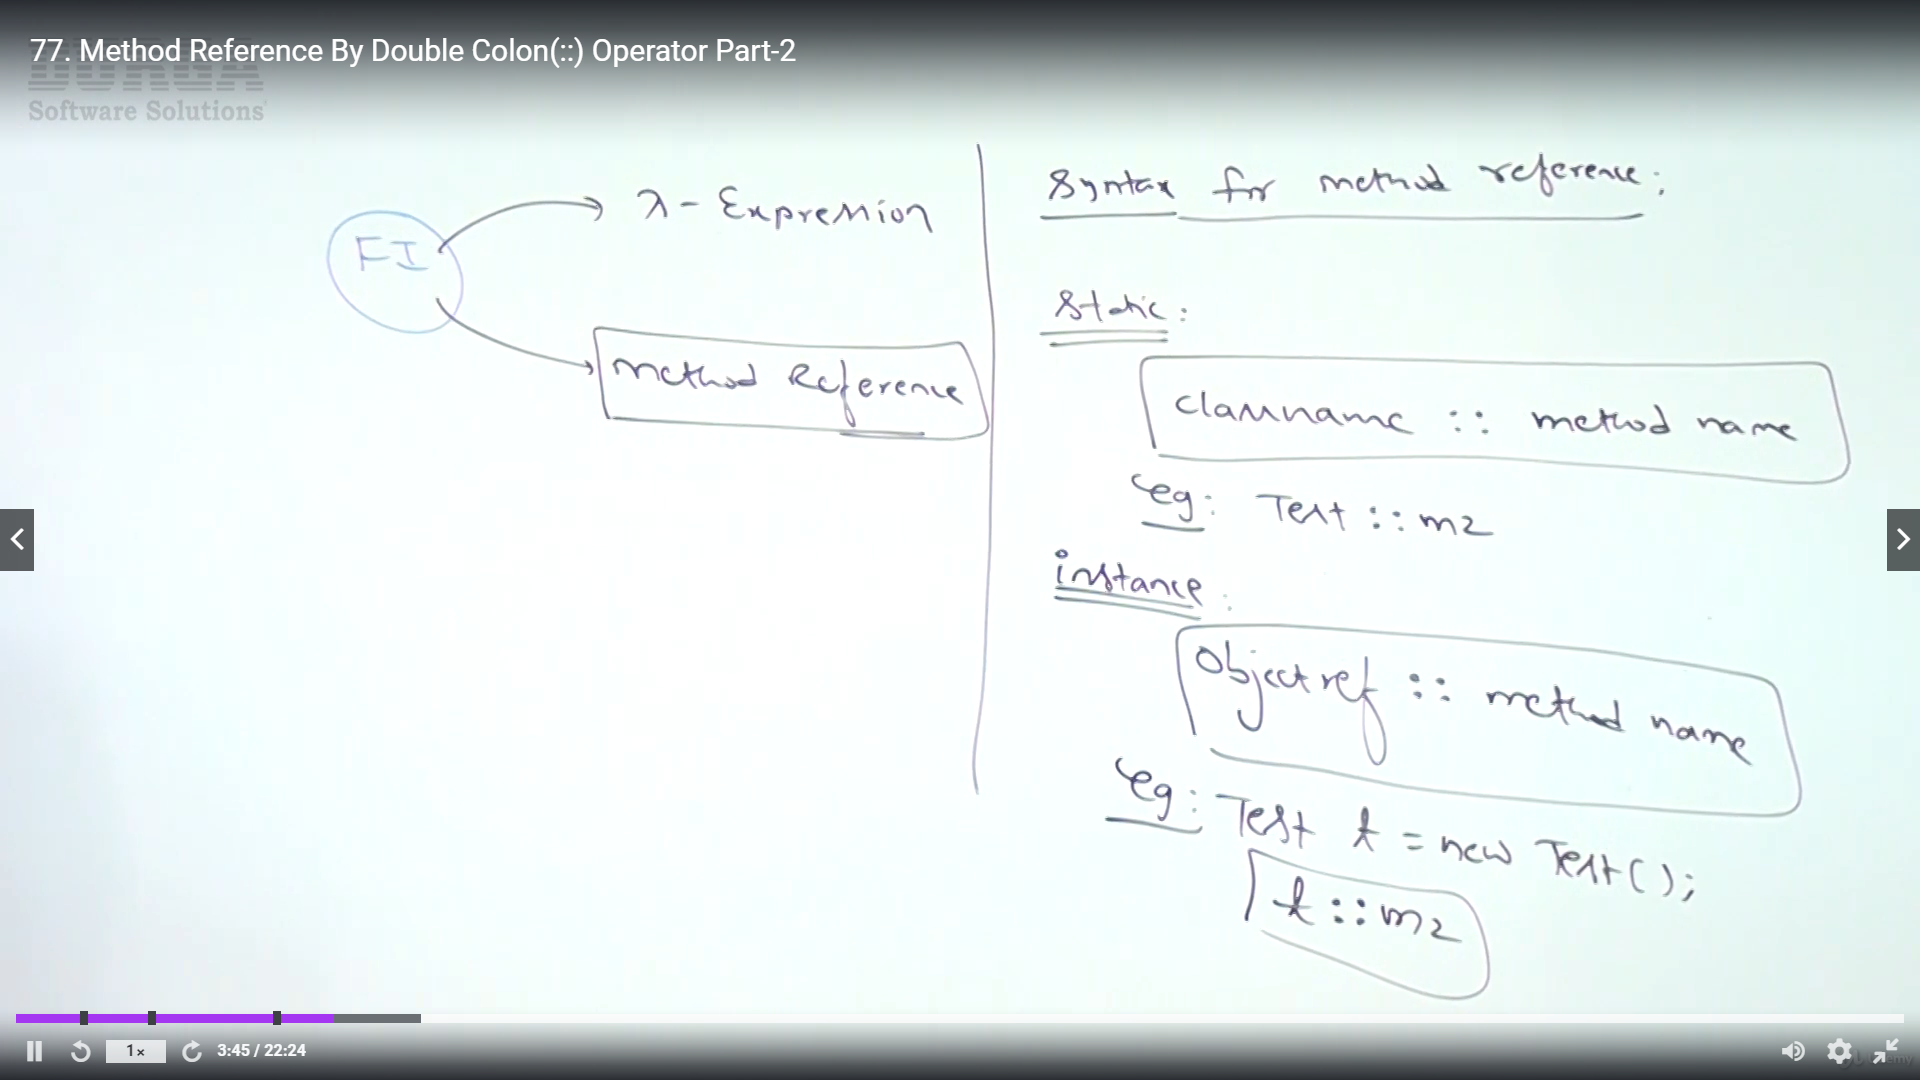 77. Method Reference By Double Colon(::) Operator Part-2
DURGA
Software Solutions
FI
λ - Expression
Method Reference
Syntax for method reference:
static:
classname :: method name
eg: Test :: m2
instance:
Objectref :: method name
eg: Test t = new Test();
t :: m2
1×
3:45 / 22:24